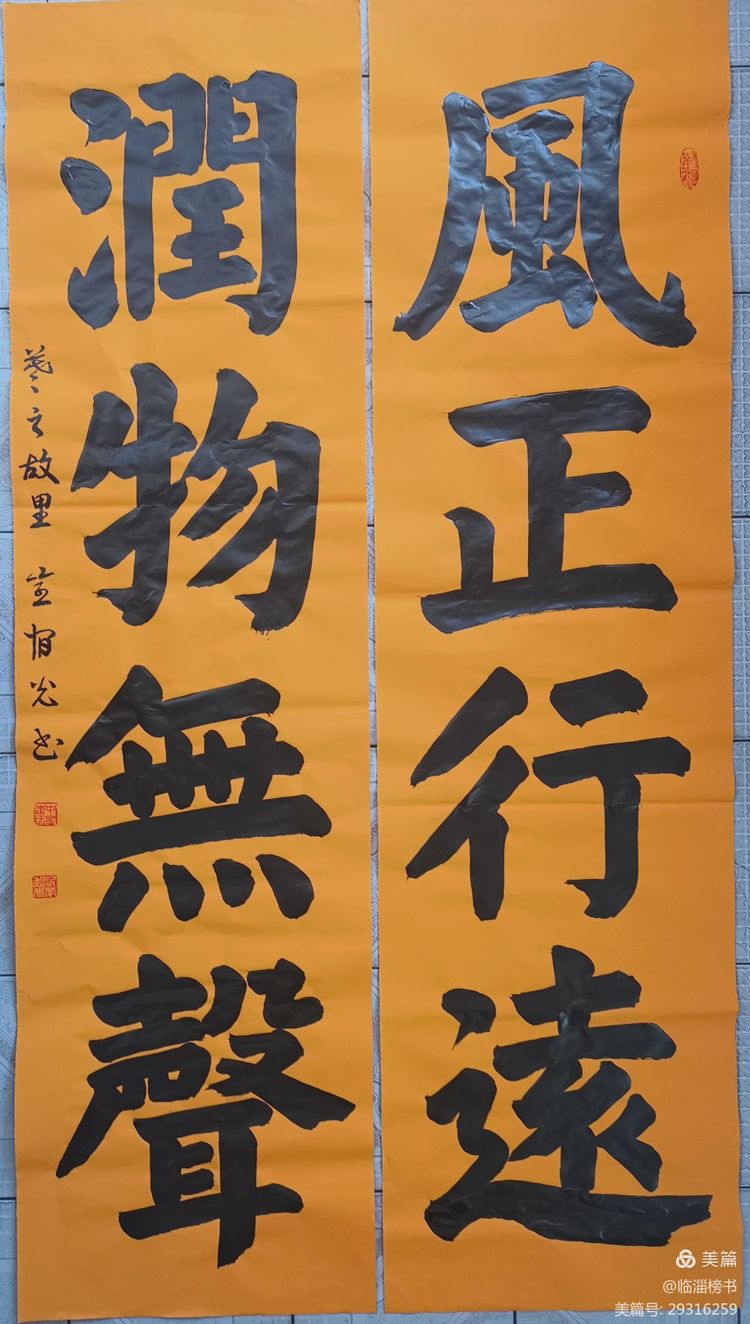 風正行遠
潤物無聲
故里
光书
美篇
@临淄榜书
美篇号: 29316259